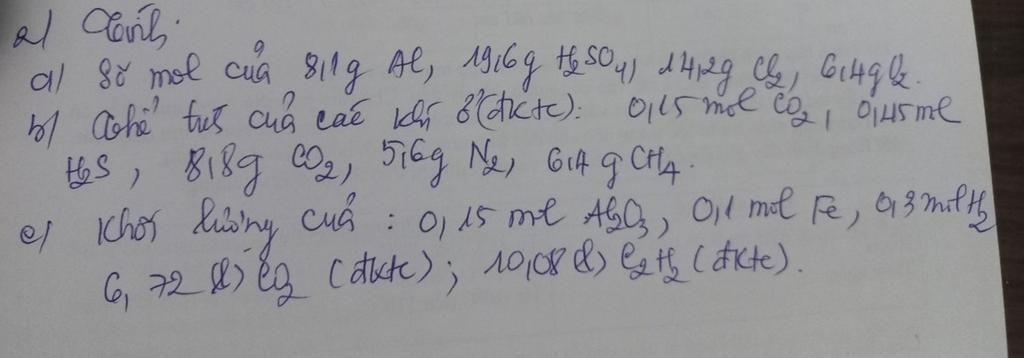 2) Tính:
a) Số mol của 8,1g Al, 19,6g H2SO4, 14,2g Cl2, 6,4g O2.
b) Thể tích của các khí ở (đktc): 0,15 mol CO2, 0,45 mol
H2S, 8,8g CO2, 5,6g N2, 6,4g CH4.
c) Khối lượng của: 0,15 mol Al2O3, 0,1 mol Fe, 0,3 mol H2
6,72 (l) CO2 (đktc); 10,08 (l) C2H2 (đktc).